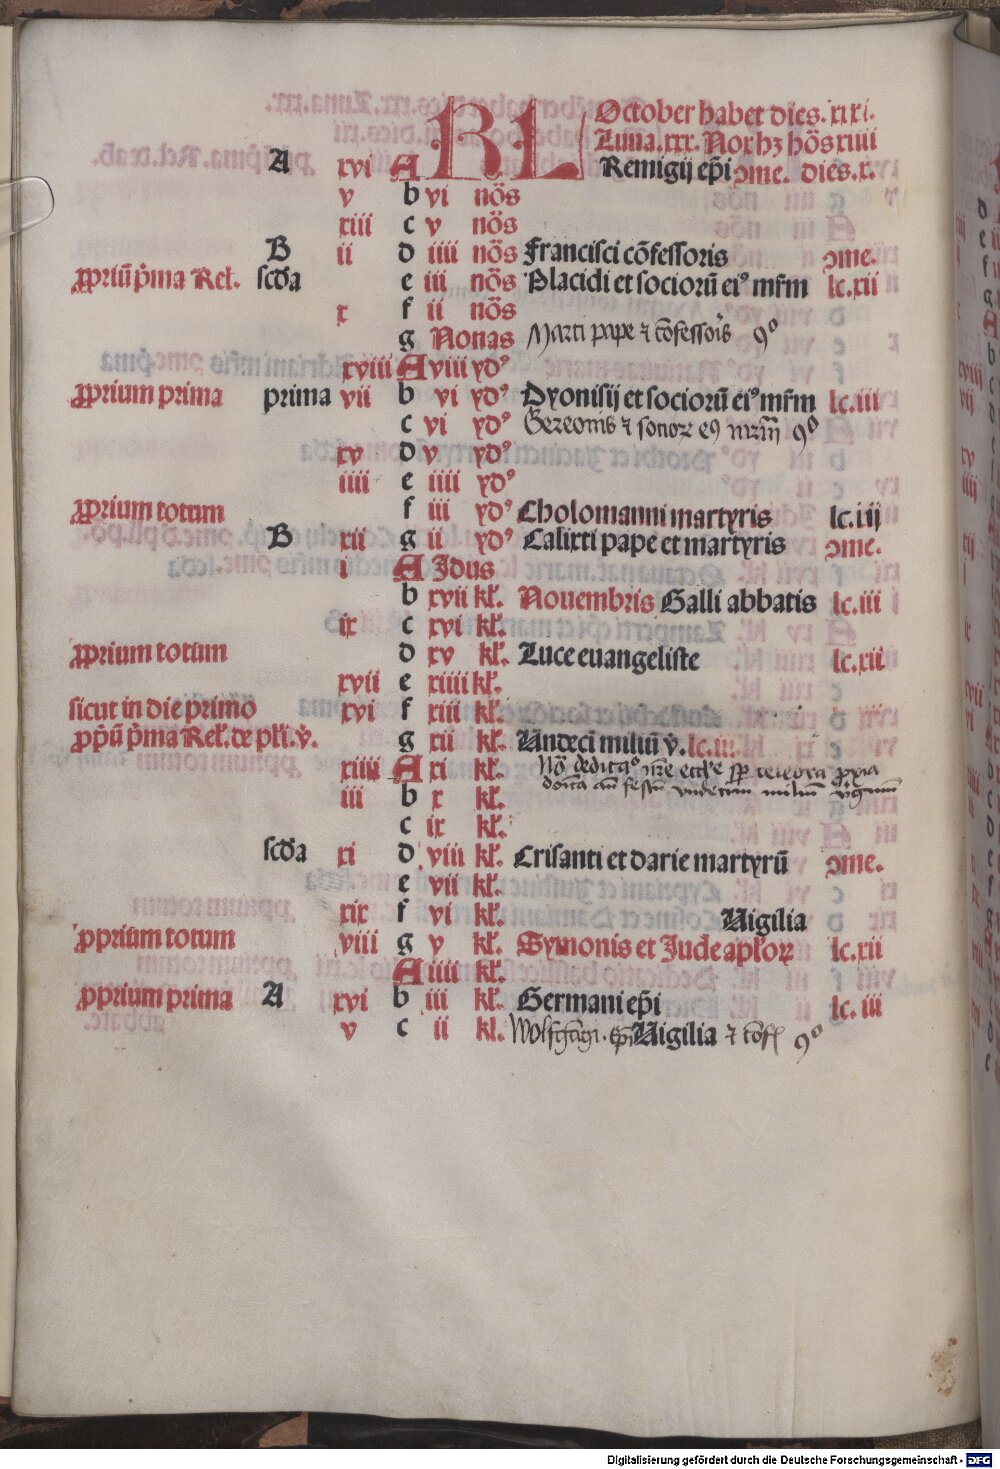 KL October habet dies. xxxi.
Luna. xxx. Nox hꝫ hōs xiiii
A xvi A Remigij ep̄i ↄme. dies. x.
v b vi nōs
xiii c v nōs
B ii d iiii nōs Francisci cōfessoris ↄme.
ꝓpriū p̄ma Rel̄. scd̄a e iii nōs Placidi et sociorū eiꝰ mr̄m lc. xii
x f ii nōs
g Nonas Marci pape ⁊ cōfessoris 9º
xviii A viii ydꝰ
ꝓprium prima prima vii b vi ydꝰ Dyonisij et sociorū eiꝰ mr̄m lc. iii
c vi ydꝰ Gereonis ⁊ socioꝝ eꝰ mr̄m 9º
xv d v ydꝰ
iiii e iiii ydꝰ
ꝓprium totum f iii ydꝰ Cholomanni martyris lc. iij
B xii g ii ydꝰ Calixti pape et martyris ↄme.
i A Idus
b xvii kl̄. Nouembris Galli abbatis lc. iii
ix c xvi kl̄.
ꝓprium totum d xv kl̄. Luce euangeliste lc. xii
xvii e xiiii kl̄.
sicut in die primo xvi f xiii kl̄.
ꝓpū p̄ma Rel̄. de pl̄i. v̄. g xii kl̄. Undeci miliū v̄. lc. iii
xiiii A xi kl̄. Nō dedicaº
iii b x kl̄. dn̄ica an̄ festū undecim milium v̄ginum
c ix kl̄.
scd̄a xi d viii kl̄. Crisanti et darie martyrū ↄme.
e vii kl̄.
xix f vi kl̄. Uigilia
ꝓprium totum viii g v kl̄. Symonis et Jude apl̄oꝝ lc. xii
A iiii kl̄.
ꝓprium prima A xvi b iii kl̄. Germani ep̄i lc. iii
v c ii kl. Wolfgāgi. ep̄i Uigilia ⁊ cōf 9º
Digitalisierung gefördert durch die Deutsche Forschungsgemeinschaft - DFG